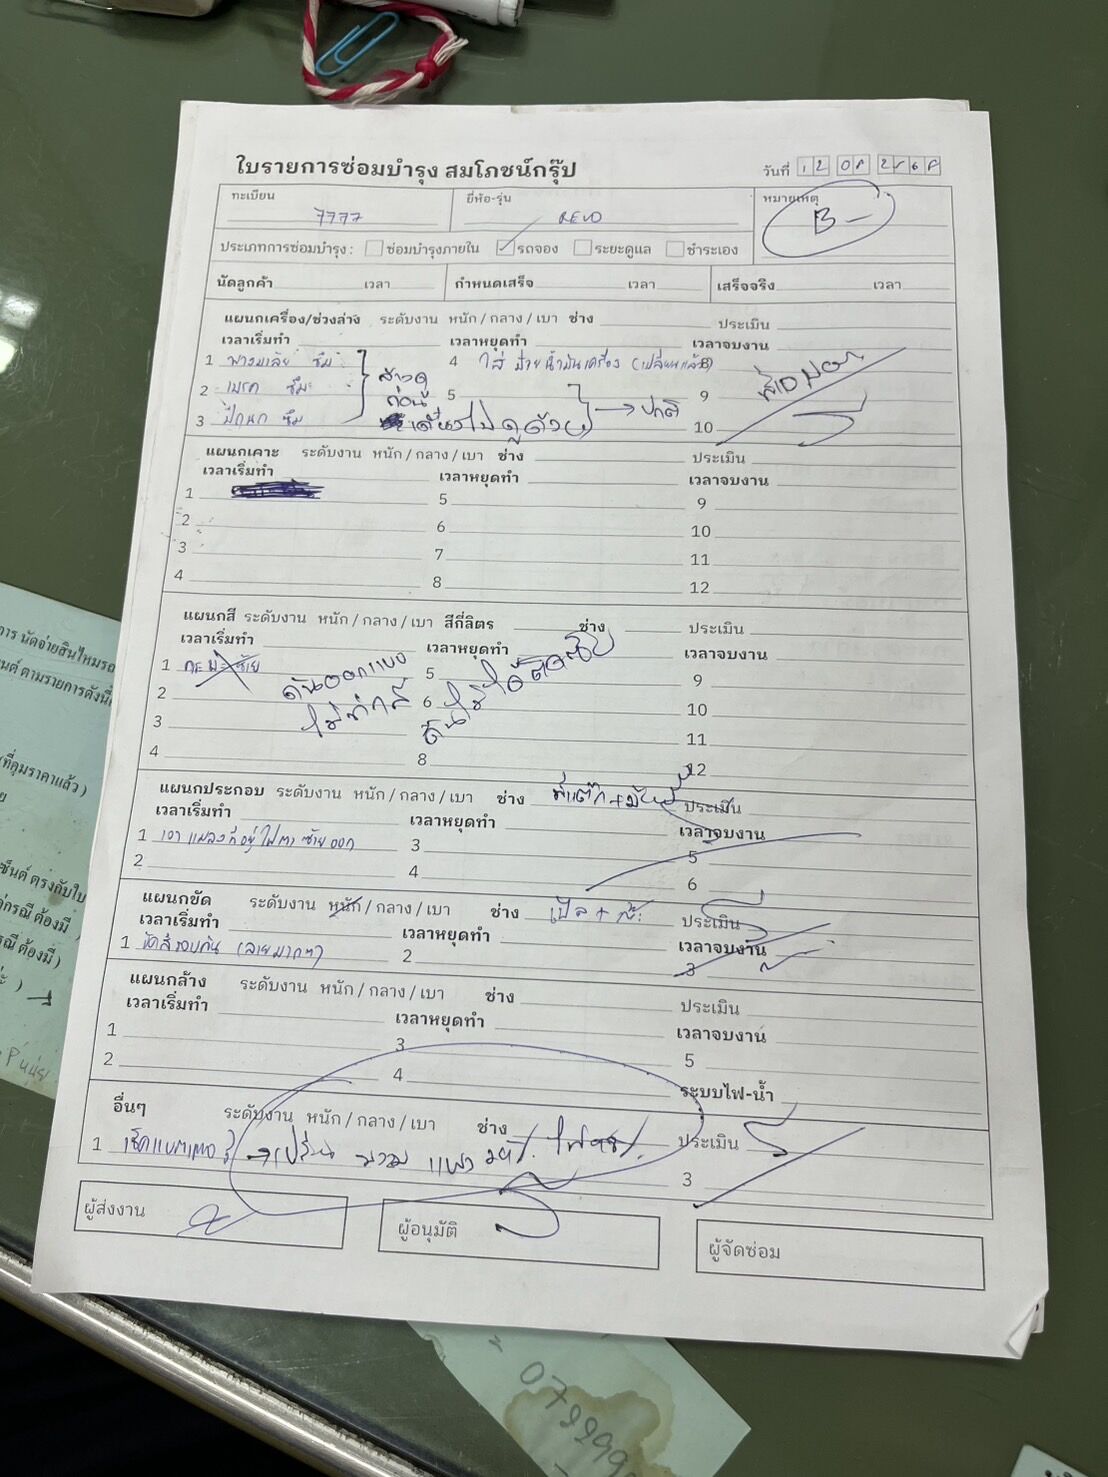 ใบรายการซ่อมบำรุง สมโภชน์กรุ๊ป
วันที่ 12 08 2568
ทะเบียน 7777 ยี่ห้อ-รุ่น REVO หมายเหตุ B-
ประเภทการซ่อมบำรุง : ซ่อมบำรุงภายใน รถจอง ระยะดูแล ชำระเอง
นัดลูกค้า เวลา กำหนดเสร็จ เวลา เสร็จจริง เวลา
แผนกเครื่อง/ช่วงล่าง ระดับงาน หนัก / กลาง / เบา ช่าง ประเมิน
เวลาเริ่มทำ เวลาหยุดทำ เวลาจบงาน
1 พวงมาลัย ซึม 4 ใส่ ป้ายน้ำมันเครื่อง (เปลี่ยนแล้ว) 8
2 เบรค ซึม ล้างดู ก่อน 5 9
3 ปีกนก ซึม ปกติ 10
แผนกเคาะ ระดับงาน หนัก / กลาง / เบา ช่าง ประเมิน
เวลาเริ่มทำ เวลาหยุดทำ เวลาจบงาน
1 5 9
2 6 10
3 7 11
4 8 12
แผนกสี ระดับงาน หนัก / กลาง / เบา สีกี่ลิตร ช่าง ประเมิน
เวลาเริ่มทำ เวลาหยุดทำ เวลาจบงาน
1 ซ้าย 5 9
2 ไม่ทำสี 6 10
3 11
4 8 12
แผนกประกอบ ระดับงาน หนัก / กลาง / เบา ช่าง ประเมิน
เวลาเริ่มทำ เวลาหยุดทำ เวลาจบงาน
1 เอา แมลงที่อยู่ ไฟตา ซ้าย ออก 3 5
2 4 6
แผนกขัด ระดับงาน หนัก / กลาง / เบา ช่าง ประเมิน
เวลาเริ่มทำ เวลาหยุดทำ เวลาจบงาน
1 ขัดสีรอบคัน (ลายมากๆ) 2 3
แผนกล้าง ระดับงาน หนัก / กลาง / เบา ช่าง ประเมิน
เวลาเริ่มทำ เวลาหยุดทำ เวลาจบงาน
1 3 5
2 4 ระบบไฟ-น้ำ
อื่นๆ ระดับงาน หนัก / กลาง / เบา ช่าง ประเมิน
1 เช็คแบตเตอรี่ 3
ผู้ส่งงาน ผู้อนุมัติ ผู้จัดซ่อม